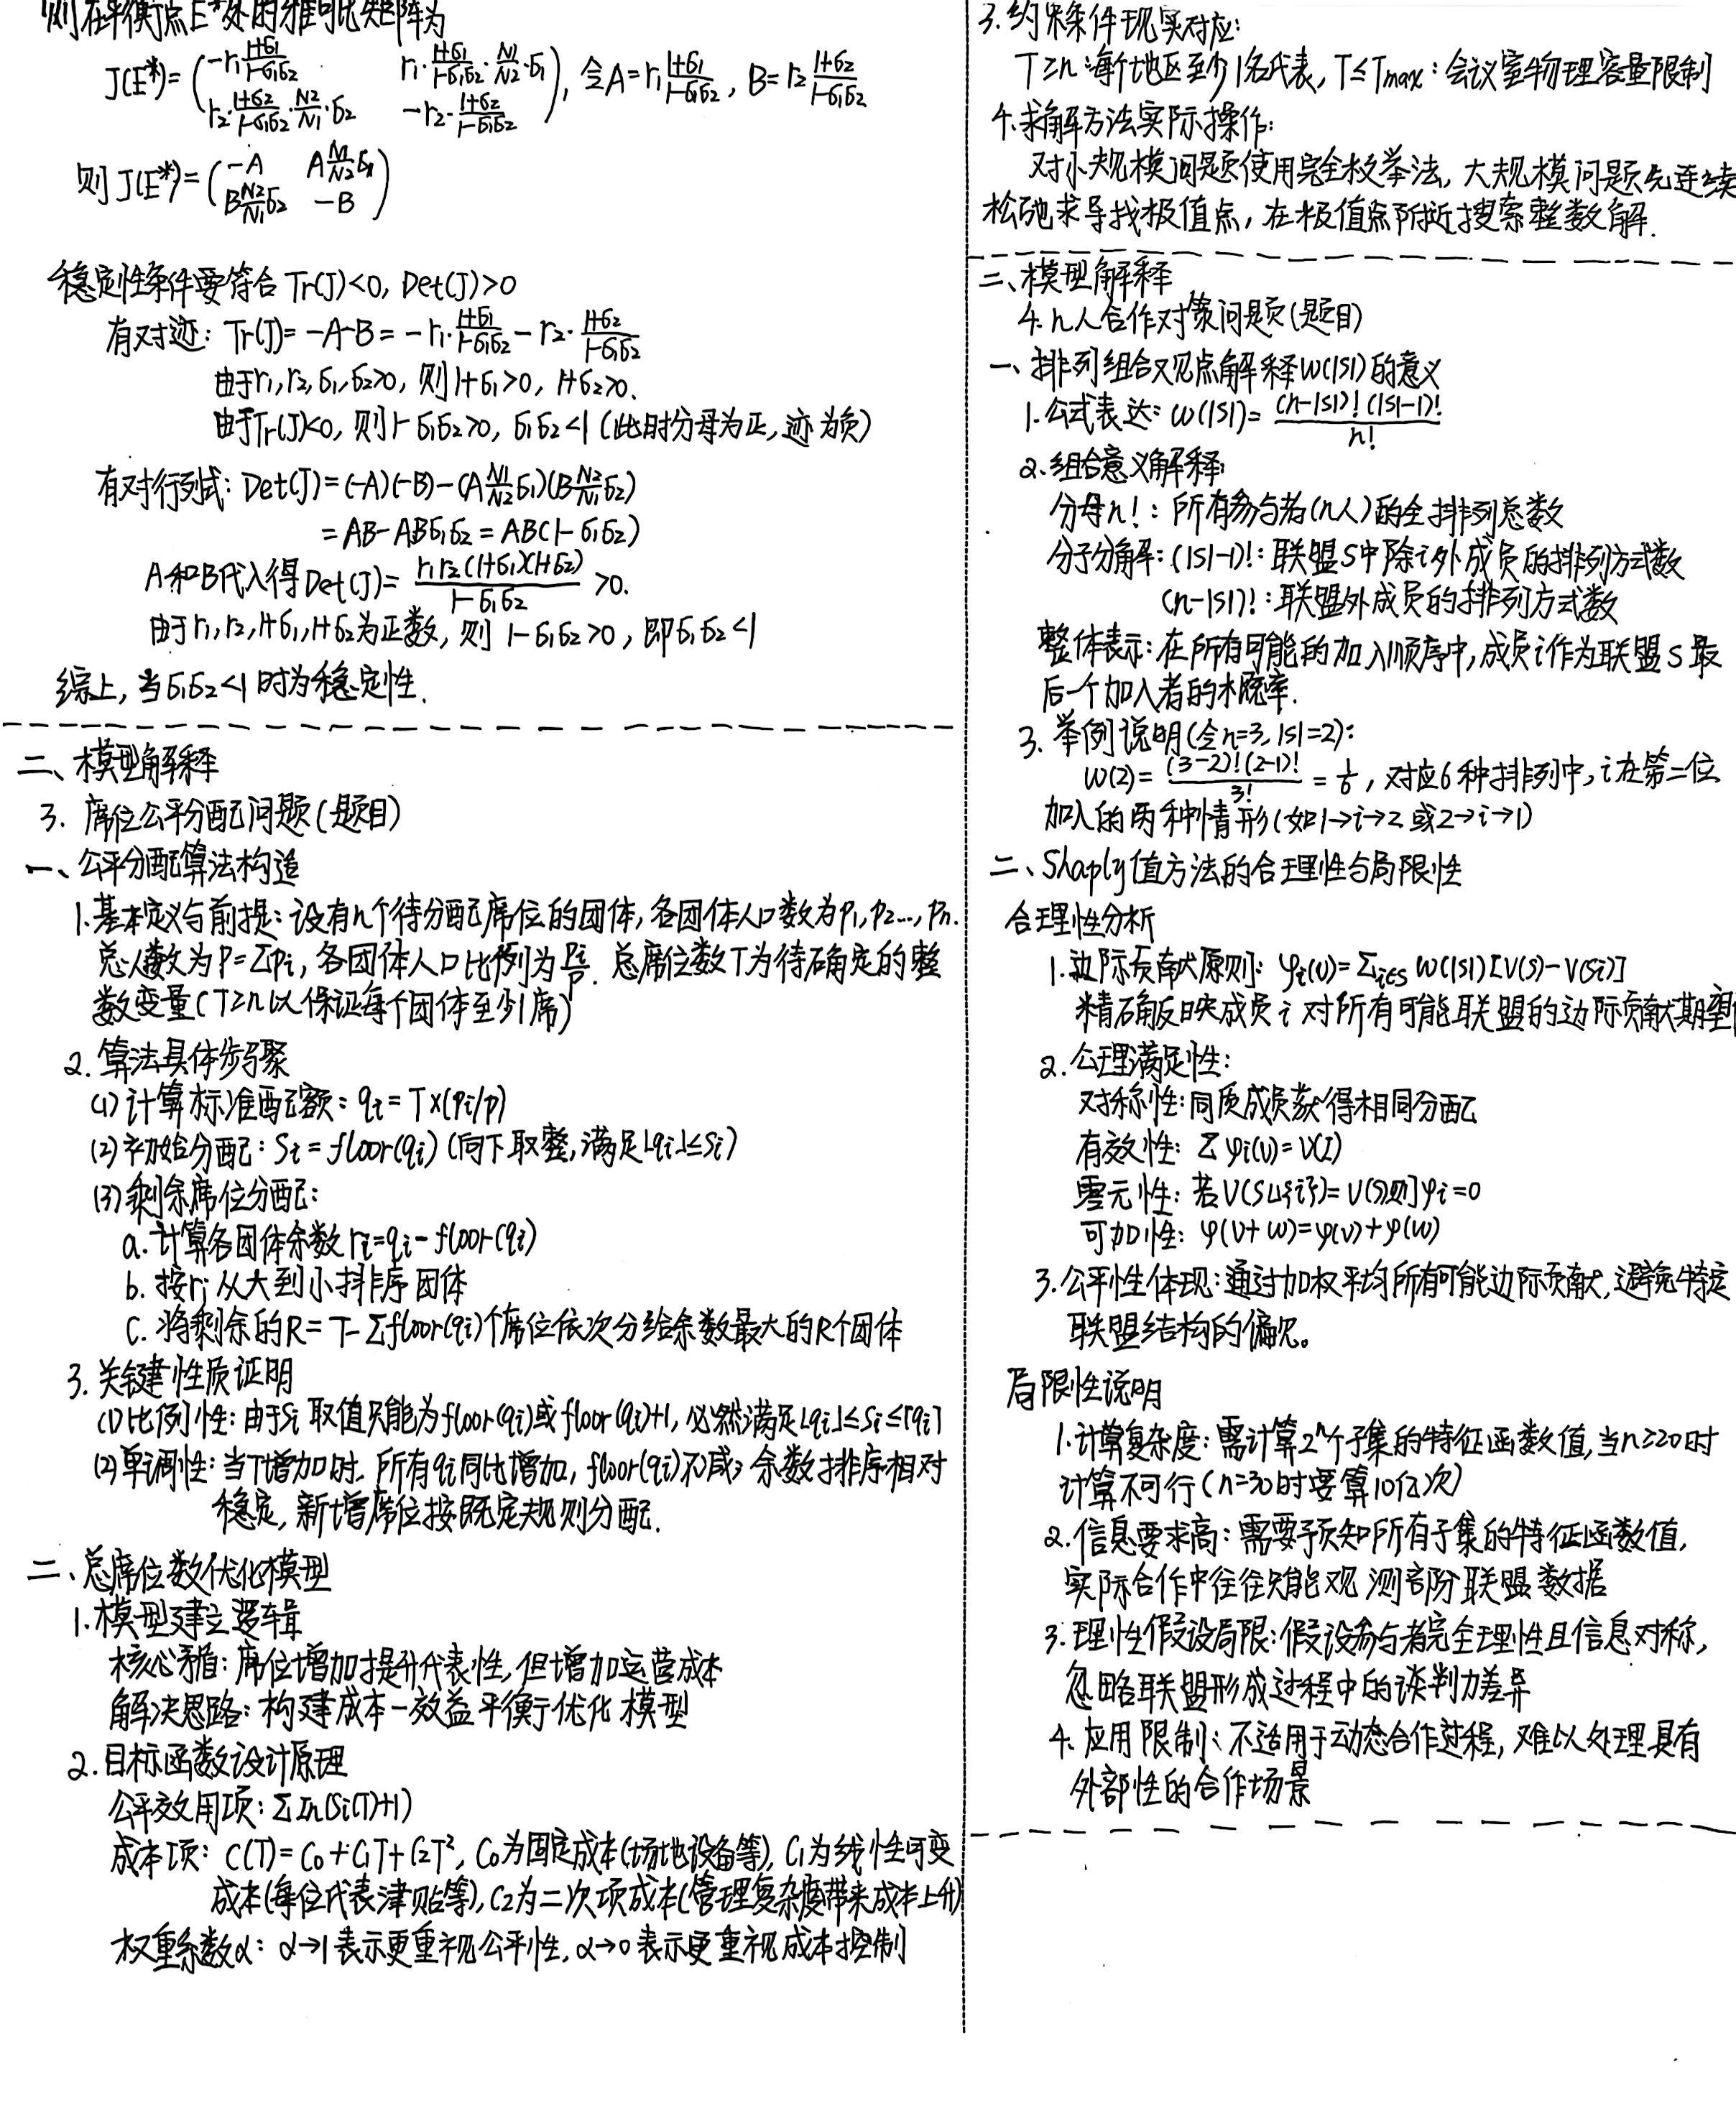 则在平衡点E*处的雅可比矩阵为
J(E*)=(-r₁(1+σ₁)/(1-σ₁σ₂)  r₁·(1+σ₁)/(1-σ₁σ₂)·N₁/N₂·σ₁
r₂·(1+σ₂)/(1-σ₁σ₂)·N₂/N₁·σ₂  -r₂·(1+σ₂)/(1-σ₁σ₂)), 令A=r₁(1+σ₁)/(1-σ₁σ₂), B=r₂(1+σ₂)/(1-σ₁σ₂)
则J(E*)=(-A  A N₁/N₂ σ₁
B N₂/N₁ σ₂  -B)
稳定性条件要符合Tr(J)<0, Det(J)>0
有对迹: Tr(J)=-A-B=-r₁·(1+σ₁)/(1-σ₁σ₂)-r₂·(1+σ₂)/(1-σ₁σ₂)
由于r₁,r₂,σ₁,σ₂>0, 则1+σ₁>0, 1+σ₂>0.
由于Tr(J)<0, 则1-σ₁σ₂>0, σ₁σ₂<1 (此时分母为正, 迹为负)
有对行列式: Det(J)=(-A)(-B)-(A N₁/N₂ σ₁)(B N₂/N₁ σ₂)
=AB-ABσ₁σ₂=AB(1-σ₁σ₂)
A和B代入得Det(J)=r₁r₂(1+σ₁)(1+σ₂)/(1-σ₁σ₂)>0.
由于r₁,r₂,1+σ₁,1+σ₂为正数, 则1-σ₁σ₂>0, 即σ₁σ₂<1
综上, 当σ₁σ₂<1时为稳定性.
二、模型解释
3. 席位公平分配问题(题目)
一、公平分配算法构造
1.基本定义与前提: 设有n个待分配席位的团体, 各团体人口数为p₁,p₂...,pₙ.
总人数为P=Σpi, 各团体人口比例为pi/p. 总席位数T为待确定的整
数变量(T≥n以保证每个团体至少1席)
2. 算法具体步骤
(1)计算标准配额: qi=T×(pi/p)
(2)初始分配: Si=floor(qi) (向下取整,满足⌊qi⌋≤Si)
(3)剩余席位分配:
a.计算各团体余数ri=qi-floor(qi)
b. 按ri从大到小排序团体
c. 将剩余的R=T-Σfloor(qi)个席位依次分给余数最大的R个团体
3. 关键性质证明
(1)比例性: 由于Si取值只能为floor(qi)或floor(qi)+1, 必然满足⌊qi⌋≤Si≤⌈qi⌉
(2)单调性: 当T增加时, 所有qi同比增加, floor(qi)不减, 余数排序相对
稳定, 新增席位按既定规则分配.
二、总席位数优化模型
1.模型建立逻辑
核心矛盾: 席位增加提升代表性, 但增加运营成本
解决思路: 构建成本—效益平衡优化模型
2.目标函数设计原理
公平效用项: Σln(Si(T)+1)
成本项: C(T)=C₀+C₁T+C₂T², C₀为固定成本(场地设备等), C₁为线性可变
成本(每位代表津贴等), C₂为二次项成本(管理复杂度带来成本上升)
权重系数α: α→1表示更重视公平性, α→0表示更重视成本控制
3.约束条件现实对应:
T≥n: 每个地区至少1名代表, T≤Tmax: 会议室物理容量限制
4.求解方法实际操作:
对小规模问题使用完全枚举法, 大规模问题先连续
松弛求导找极值点, 在极值点附近搜索整数解.
三、模型解释
4. n人合作对策问题(题目)
一、排列组合观点解释w(|S|)的意义
1.公式表达: w(|S|)=(n-|S|)!(|S|-1)!/n!
2.组合意义解释:
分母n!: 所有参与者(n人)的全排列总数
分子分解: (|S|-1)!: 联盟S中除i外成员的排列方式数
(n-|S|)!: 联盟外成员的排列方式数
整体表示: 在所有可能的加入顺序中, 成员i作为联盟S最
后一个加入者的概率.
3. 举例说明(令n=3, |S|=2):
W(2)=(3-2)!(2-1)!/3!=1/6, 对应6种排列中, i在第二位
加入的两种情形(如1→i→2或2→i→1)
二、Shaply值方法的合理性与局限性
合理性分析
1.边际贡献原则: φi(v)=Σi∈S W(|S|)[V(S)-V(S\i)]
精确反映成员i对所有可能联盟的边际贡献期望值
2.公理满足性:
对称性: 同质成员获得相同分配
有效性: Σφi(v)=V(I)
零元性: 若V(S∪{i})=V(S)则φi=0
可加性: φ(v+w)=φ(v)+φ(w)
3.公平性体现: 通过加权平均所有可能边际贡献, 避免特定
联盟结构的偏见。
局限性说明
1.计算复杂度: 需计算2ⁿ个子集的特征函数值, 当n≥20时
计算不可行(n=30时要算10亿次)
2.信息要求高: 需要预知所有子集的特征函数值,
实际合作中往往只能观测部分联盟数据
3.理性假设局限: 假设参与者完全理性且信息对称,
忽略联盟形成过程中的谈判力差异
4.应用限制: 不适用于动态合作过程, 难以处理具有
外部性的合作场景